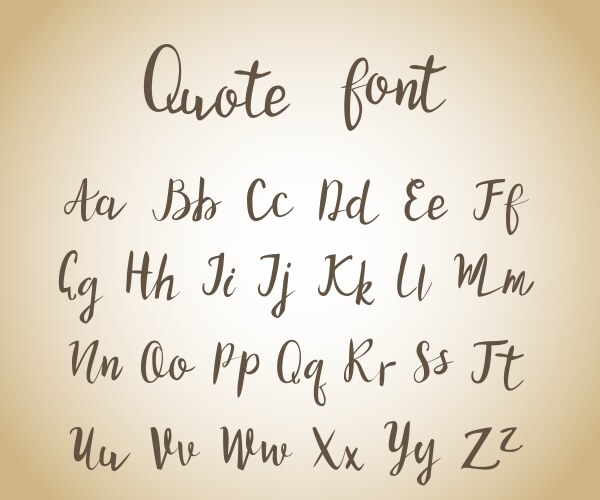 Quote font
Aa Bb Cc Dd Ee Ff
Gg Hh Ii Jj Kk Ll Mm
Nn Oo Pp Qq Rr Ss Tt
Uu Vv Ww Xx Yy Zz